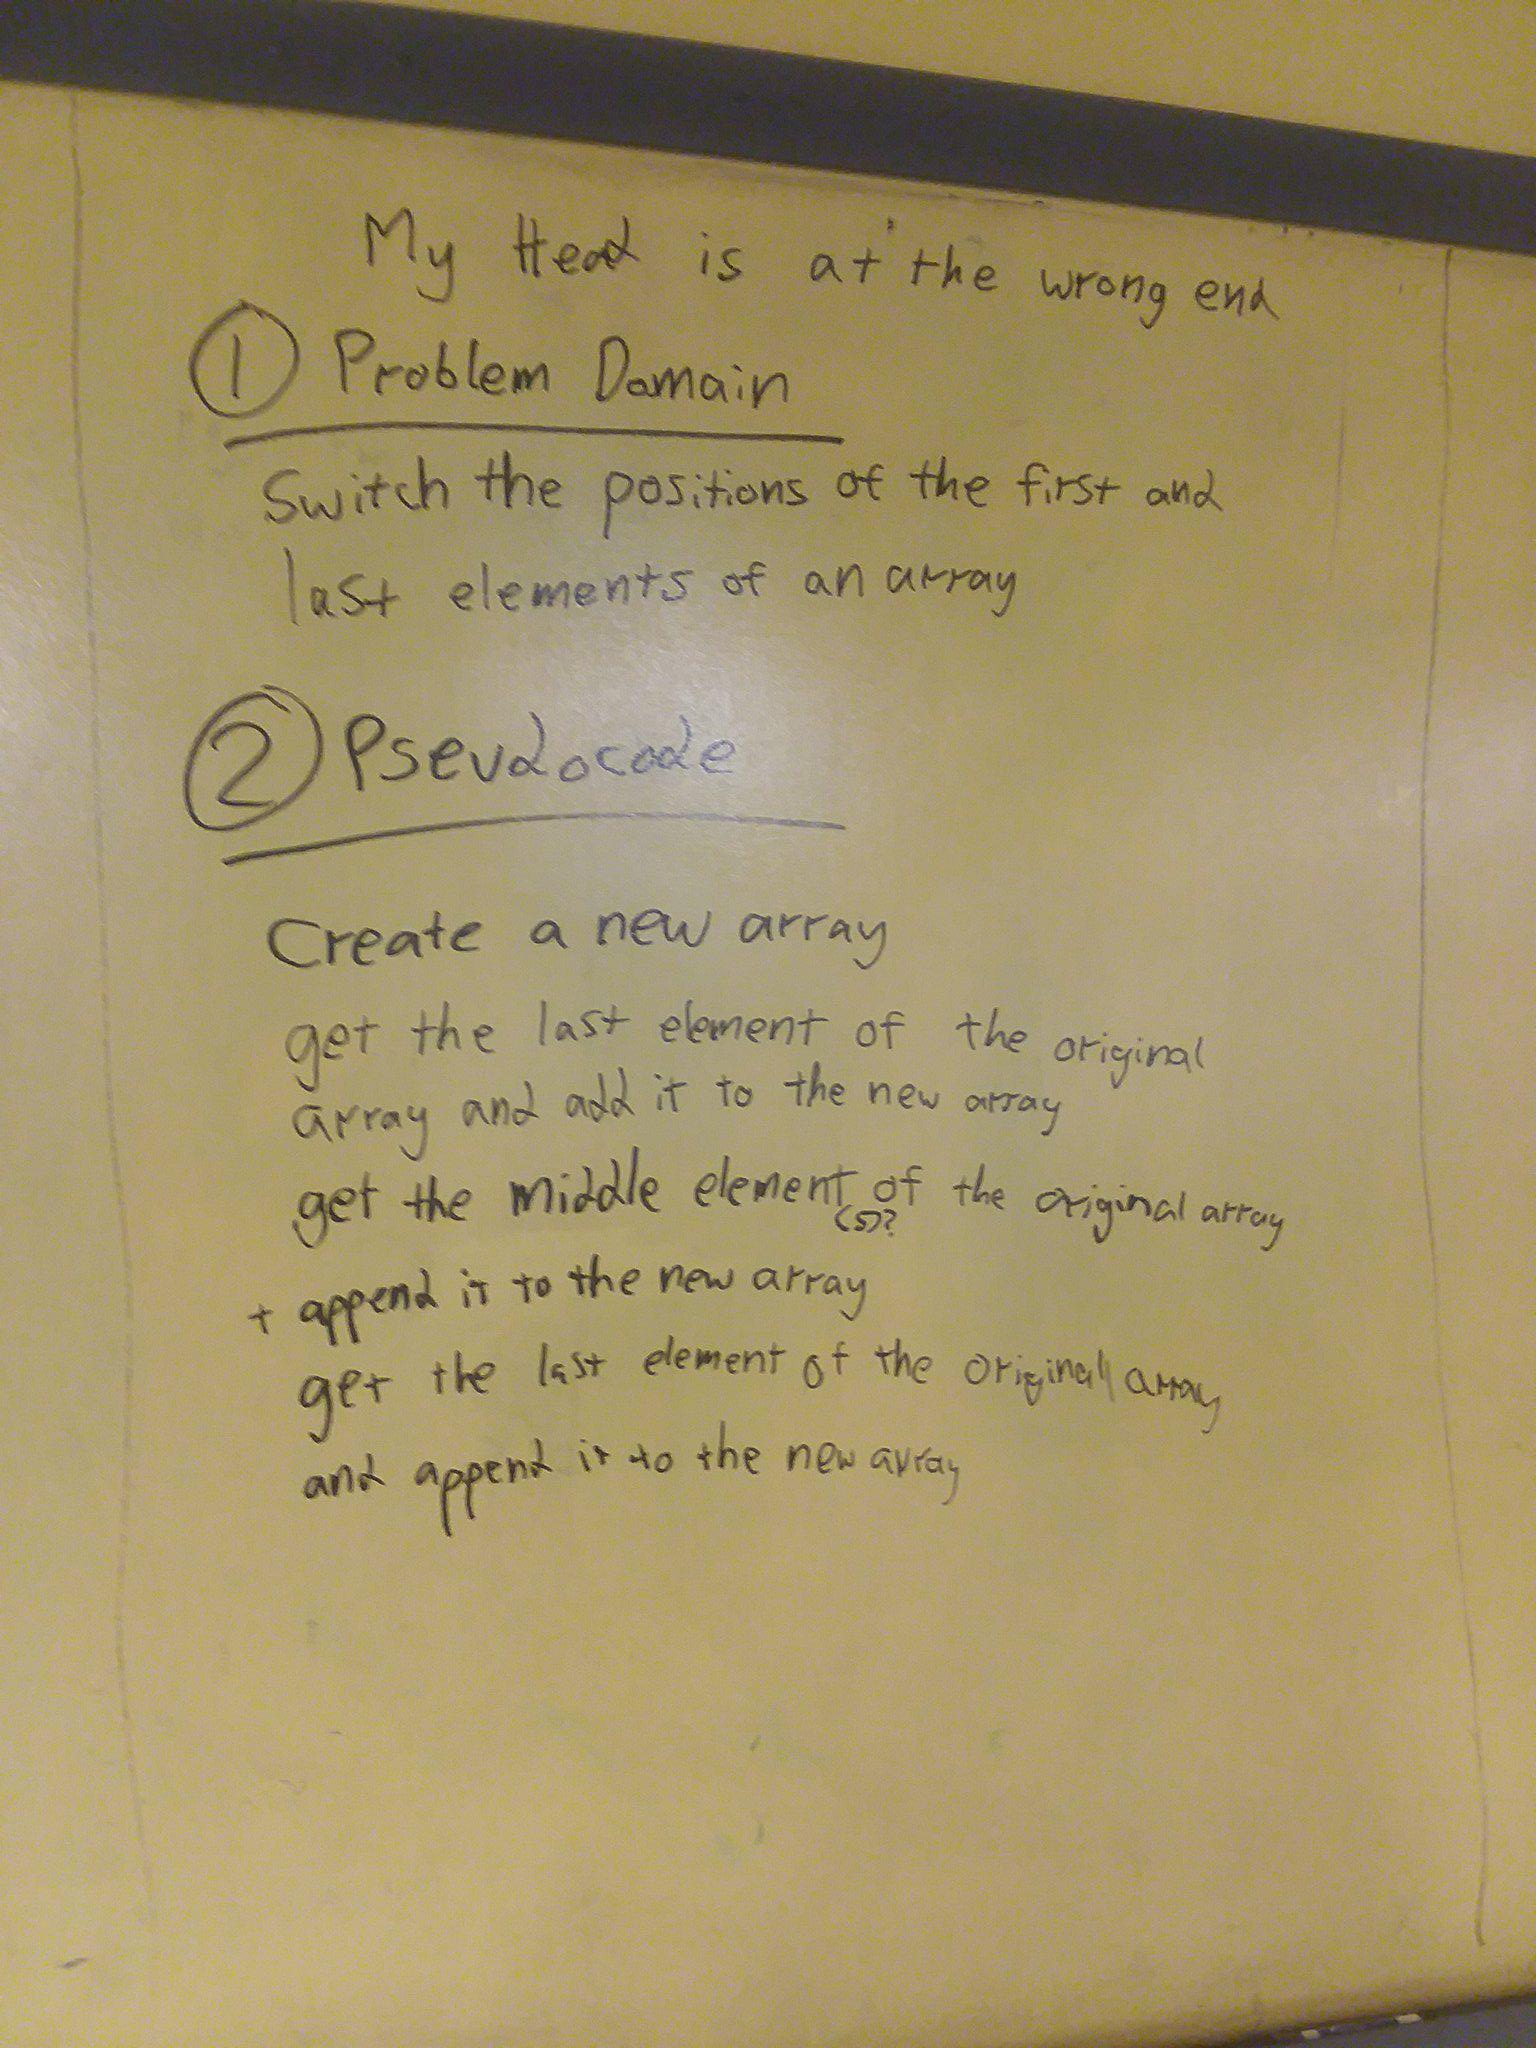 My Head is at the wrong end
1 Problem Domain
Switch the positions of the first and
last elements of an array
2 Pseudocode
Create a new array
get the last element of the original
array and add it to the new array
get the middle element of the original array
(s)?
+ append it to the new array
get the last element of the original array
and append it to the new array